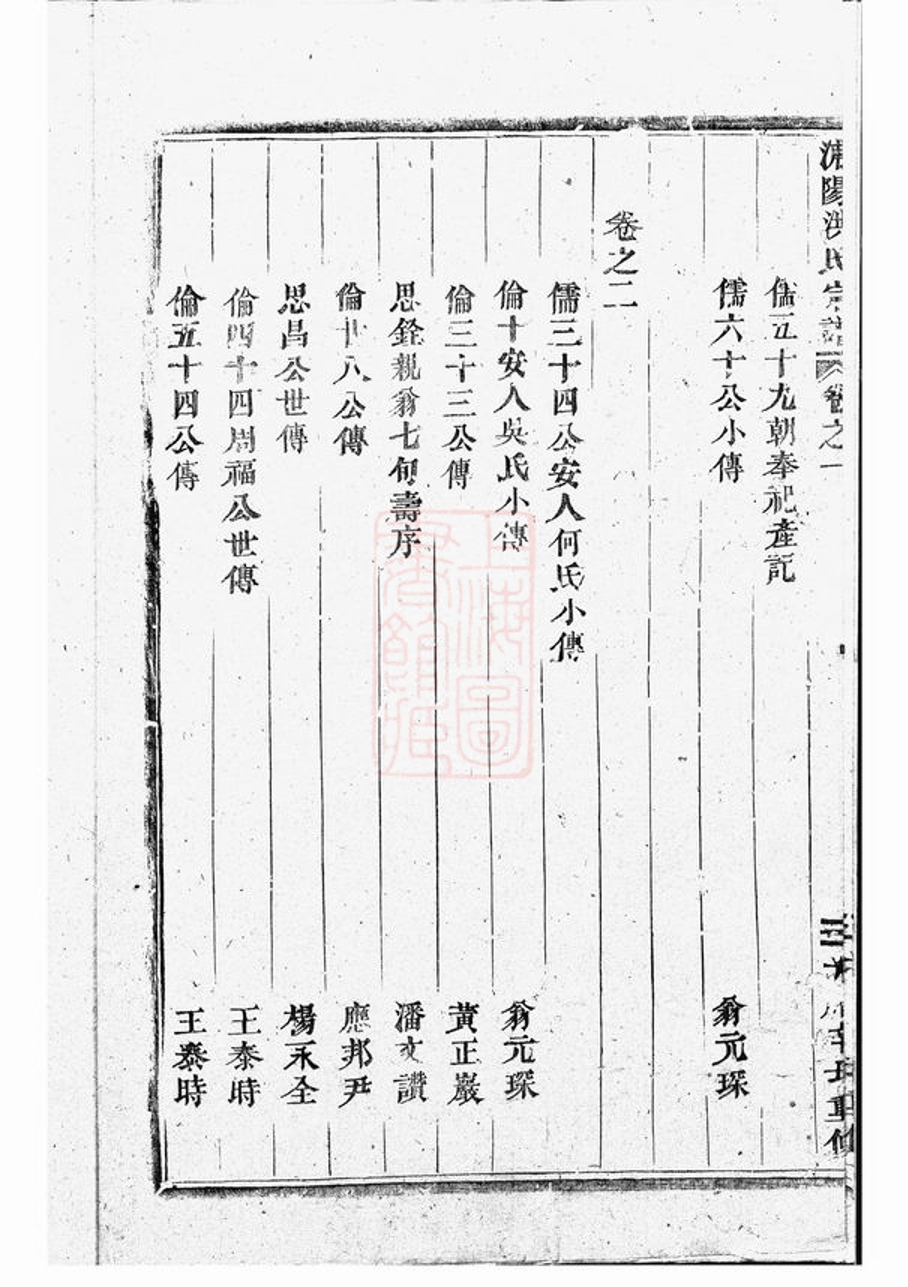 陽洪氏宗譜 卷之一 重修
儒五十九朝奉祀產記
儒六十公小傳 翁元琛
卷之二
儒三十四公安人何氏小傳
倫十安人吳氏小傳 翁元琛
倫三十三公傳 黃正巖
思銓親翁七旬壽序 潘文讚
倫廿八公傳 應邦尹
思昌公世傳 楊永全
倫四十四周福公世傳 王泰時
倫五十四公傳 王泰時
上海圖書館藏